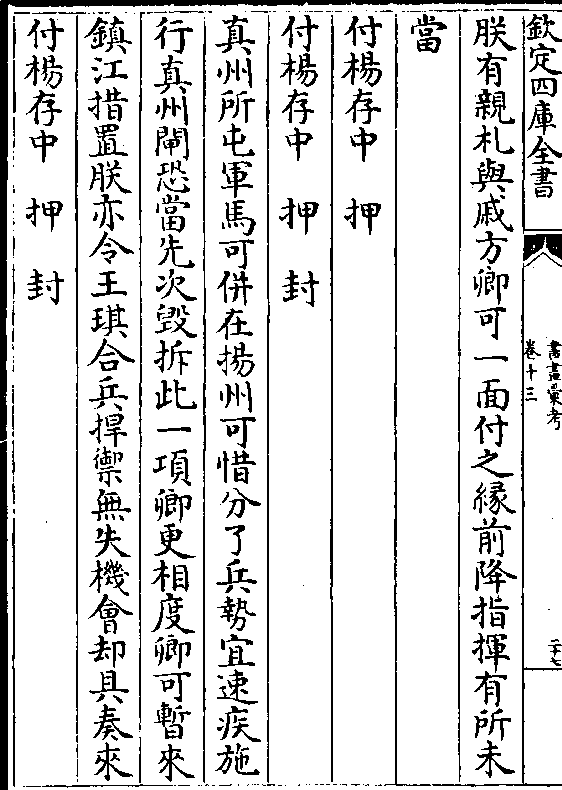 欽定四庫全書
書畫彙考
卷十三
二十七
朕有親札與戚方卿可一面付之緣前降指揮有所未
當
付楊存中　押
付楊存中　押　封
真州所屯軍馬可併在揚州可惜分了兵勢宜速疾施
行真州閘恐當先次毀拆此一項卿更相度卿可暫來
鎮江措置朕亦令王琪合兵捍禦無失機會却具奏來
付楊存中　押　封